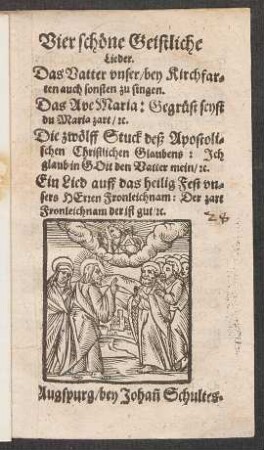 Vier schöne Geistliche
Lieder.
Das Vatter vnser/ bey Kirchfar-
ten auch sonsten zu singen.
Das Ave Maria: Gegrüst seyst
du Maria zart/ ꝛc.
Die zwölff Stuck deß Apostoli-
schen Christlichen Glaubens: Ich
glaub in GOtt den Vatter mein/ ꝛc.
Ein Lied auff das heilig Fest vn-
sers HErren Fronleichnam: Der zart
Fronleichnam der ist gut ꝛc.
28
Augspurg/ bey Johañ Schultes.